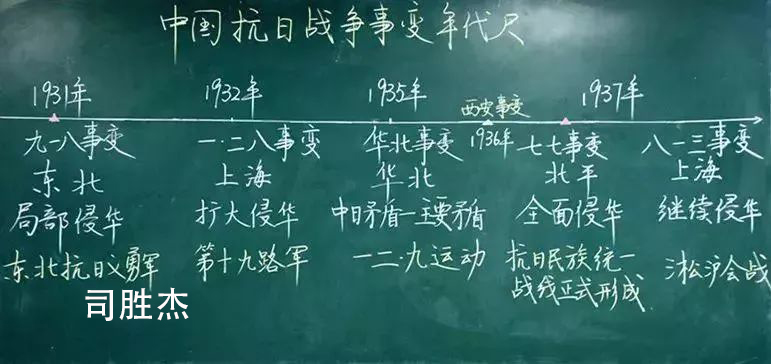 中国抗日战争事变年代尺
1931年 1932年 1935年 西安事变 1937年
九一八事变 一·二八事变 华北事变 1936年 七七事变 八一三事变
东北 上海 华北 北平 上海
局部侵华 扩大侵华 中日矛盾→主要矛盾 全面侵华 继续侵华
东北抗日义勇军 第十九路军 一二·九运动 抗日民族统一 淞沪会战
战线正式形成
司胜杰